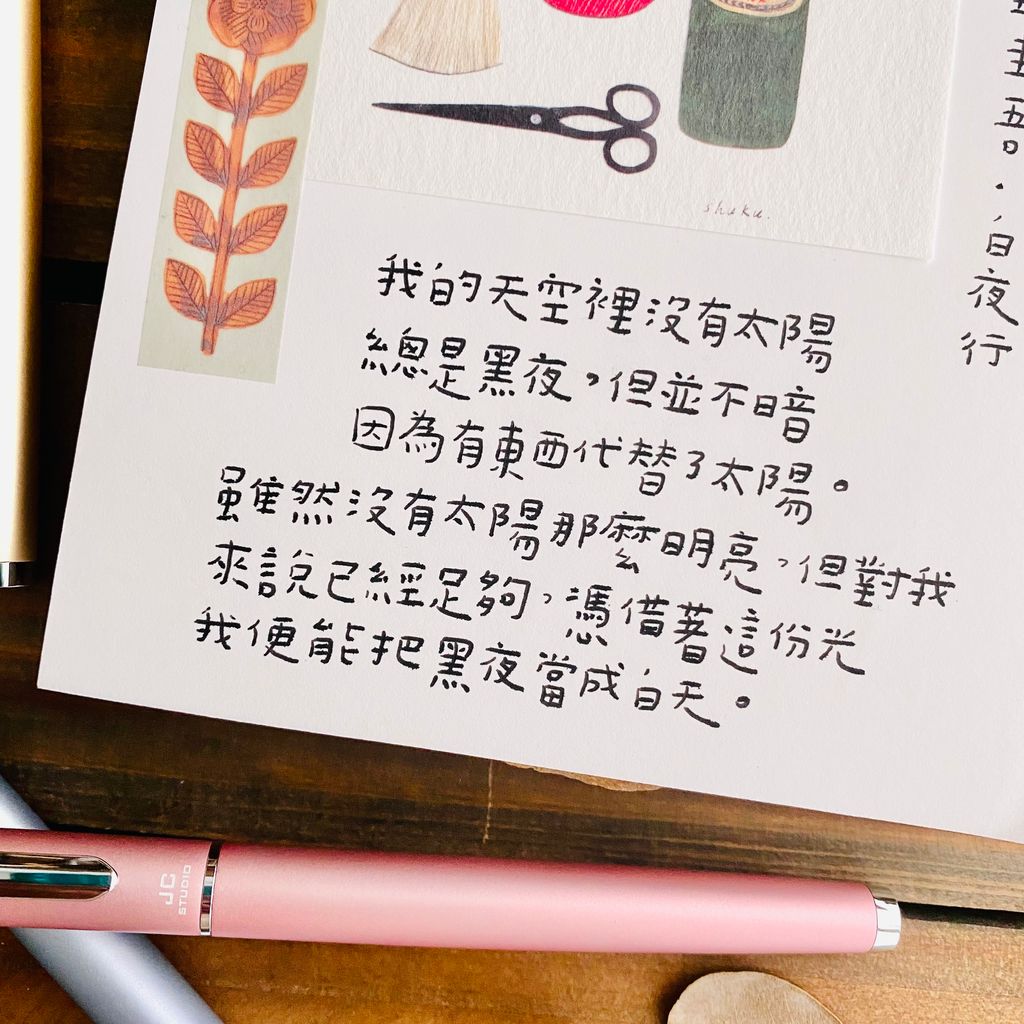 shuku.
我的天空裡沒有太陽
總是黑夜，但並不暗
因為有東西代替了太陽。
雖然沒有太陽那麼明亮，但對我
來說已經足夠，憑借著這份光
我便能把黑夜當成白天。
圭吾·白夜行
JC
STUDIO